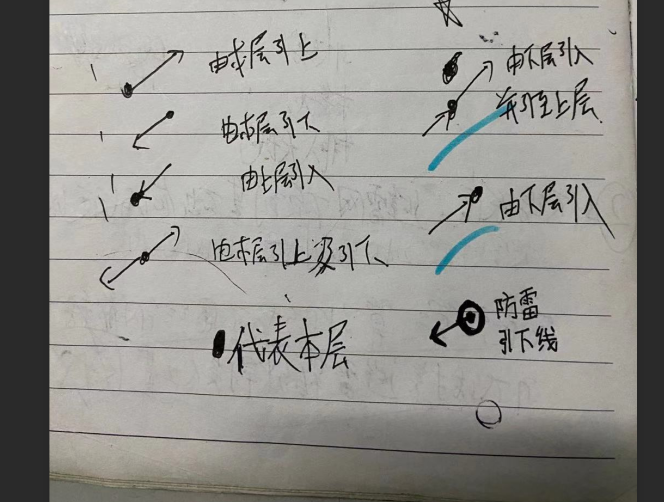 由本层引上
由本层引下
由上层引入
由本层引上及引下
代表本层
由下层引入
并引至上层
由下层引入
防雷
引下线